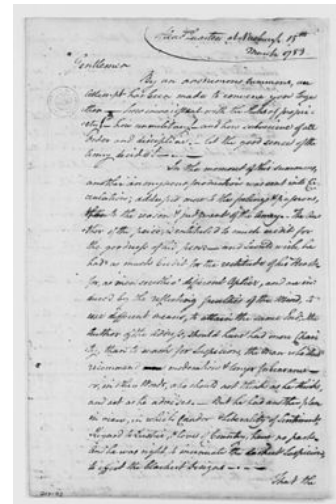 Head Quarters at Newburgh 15th
March 1783
Gentlemen
By an anonymous summons, an
attempt has been made to convene you toge
ther — how inconsistent with the rules of propri
ety! — how unmilitary! — and how subversive of all
order and discipline — let the good sense of the
Army decide. —
In the moment of this summons,
another anonymous production was sent into Cir
culation; addressed more to the feelings & passions,
than to the reason & judgment of the Army. The Au
thor of the piece, is entitled to much credit for
the goodness of his Pen: — and I could wish he
had as much credit for the rectitude of his Heart —
for, as men see thro' different Optics, and are in
duced by the reflecting faculties of the Mind, to
use different means, to attain the same end; the
Author of the Address, should have had more Chari
ty, than to mark for Suspicion, the Man who should
recommend moderation & longer forbearance —
or, in other Words, who should not think as he thinks,
and act as he advises. — But he had another plan
in view, in which Candor & liberality of Sentiment,
Regard to Justice, & love of Country, have no part;
and he was right, to insinuate the darkest suspicion,
to effect the blackest designs. —
That the